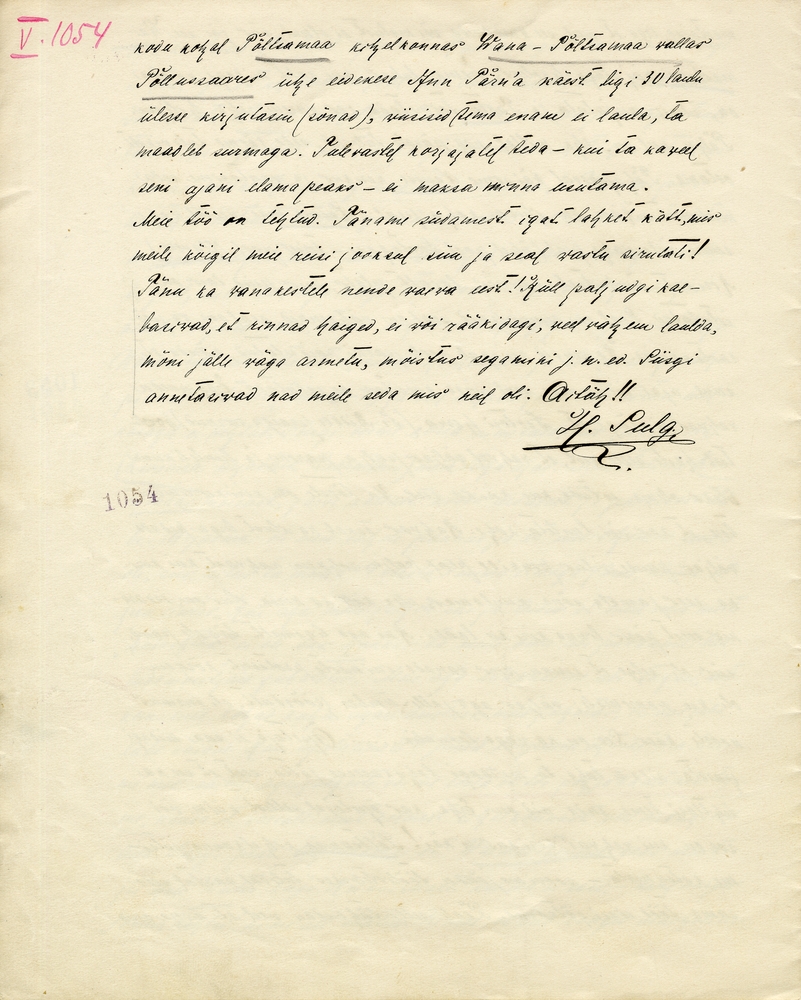 V. 1054
kodu kohal Põltsamaa kihelkonnas Wana-Põltsamaa vallas
Põllussaares ühe eidekese Ann Pärn'a käest ligi 30 laulu
ülesse kirjutasin (sõnad), viisisid tema enam ei laula, ta
maadleb surmaga. Tulevastel korjajatel teda – kui ta ka veel
seni ajani elama peaks – ei maksa minna usutama.
Meie töö on tehtud. Täname südamest igat lahket kätt, mis
meile kõigil meie reisi jooksul siin ja seal vastu sirutati!
Tänu ka vanakestele nende vaeva eest! Küll paljudgi kae-
basivad, et rinnad haiged, ei või rääkidagi, veel vähem laulda,
mõni jälle väga armetu, mõistus segamini j. n. ed. Siisgi
annetasivad nad meile seda mis neil oli. Aitäh!!
H. Pulg.
1054